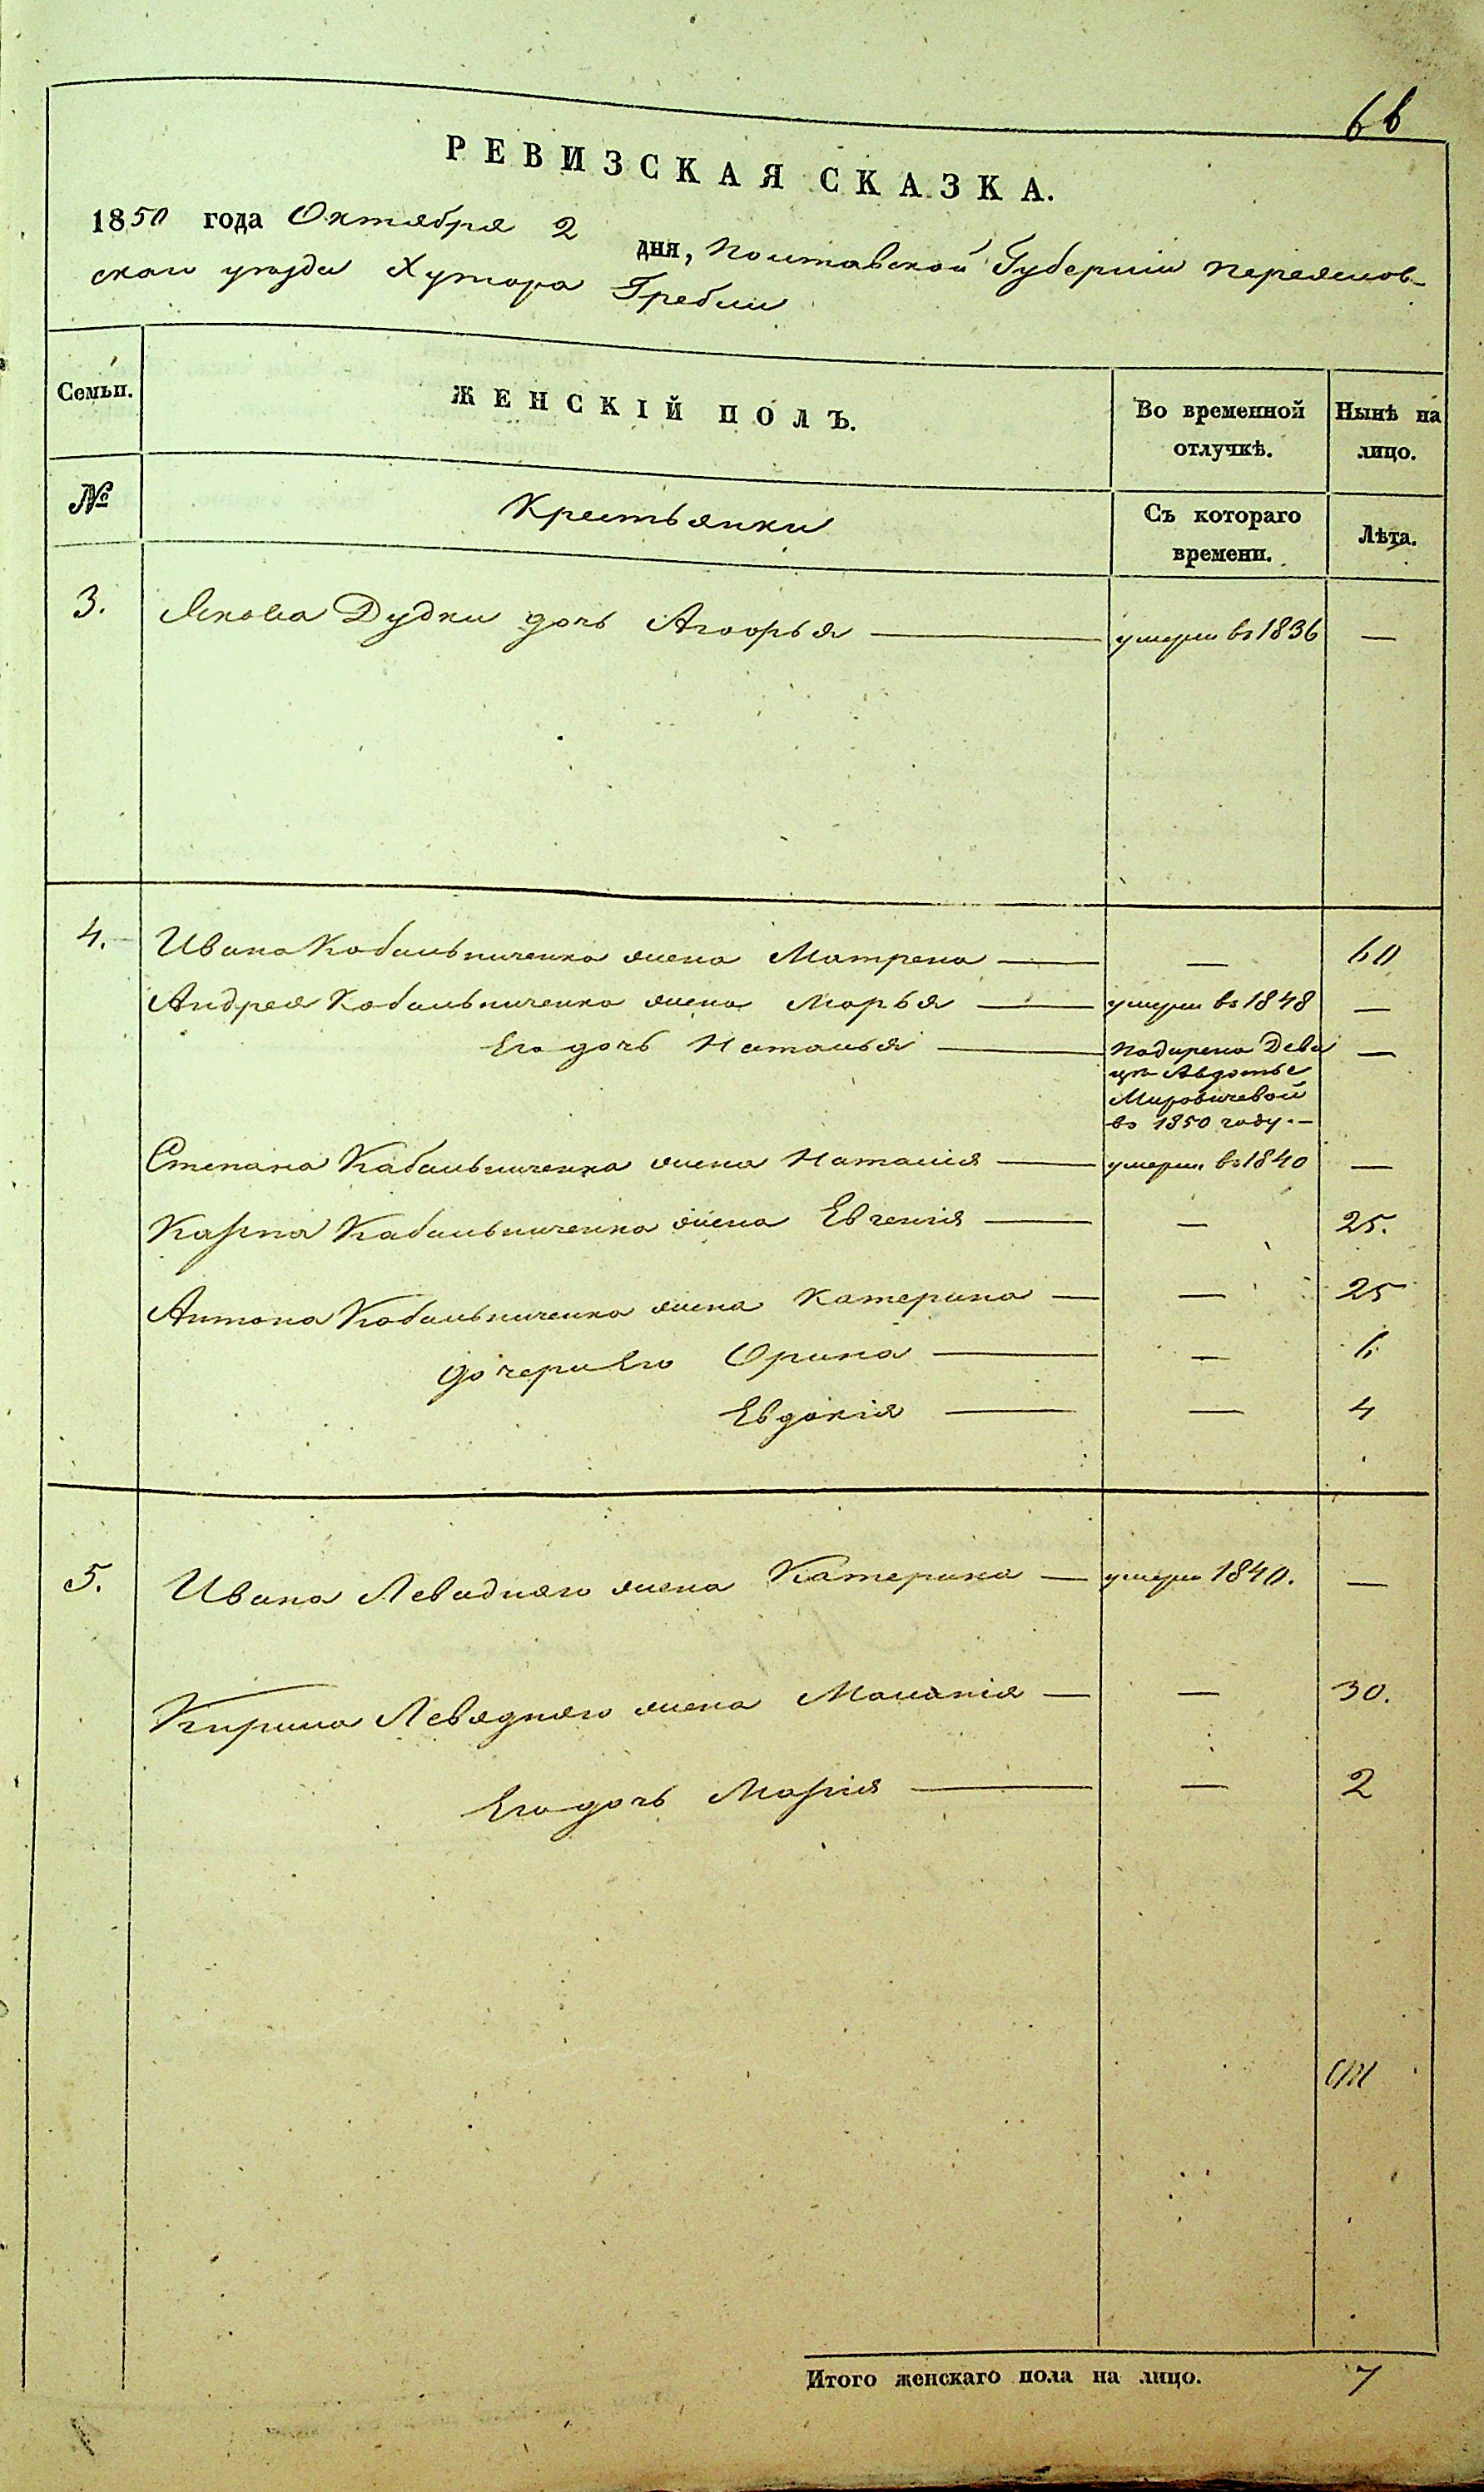 6 в
РЕВИЗСКАЯ СКАЗКА.
1850 года Октября 2 дня, Полтавской Губернии Переяслов-
скаго уезда Хутора Гребли
Семьи. ЖЕНСКІЙ ПОЛЪ. Во временной отлучкѣ. Нынѣ на лицо.
№ Крестьянки Съ котораго времени. Лѣта.
3. Якова Дудки дочь — умерла въ 1836 —
4. Ивана Кобыльниченка жена Матрена — — 60
Андрея Кобыльниченка жена Марья — умерла въ 1848 —
Его дочь Наталья — Подарена Деви —
це Авдотье
Мировичевой
въ 1850 году. —
Степана Кабыльниченка жена Наталія — умерла въ 1840 —
Карпа Кабыльниченка жена Евгенія — — 25.
Антона Кобыльниченка жена Катерина — — 25
дочери Его Орина — — 6
Евдокія — — 4
5. Ивана Левадняго жена Катерина — умерла 1840. —
Кирила Левадняго жена Маланія — — 30.
Его дочь Марія — — 2
Итого женскаго пола на лицо. 7